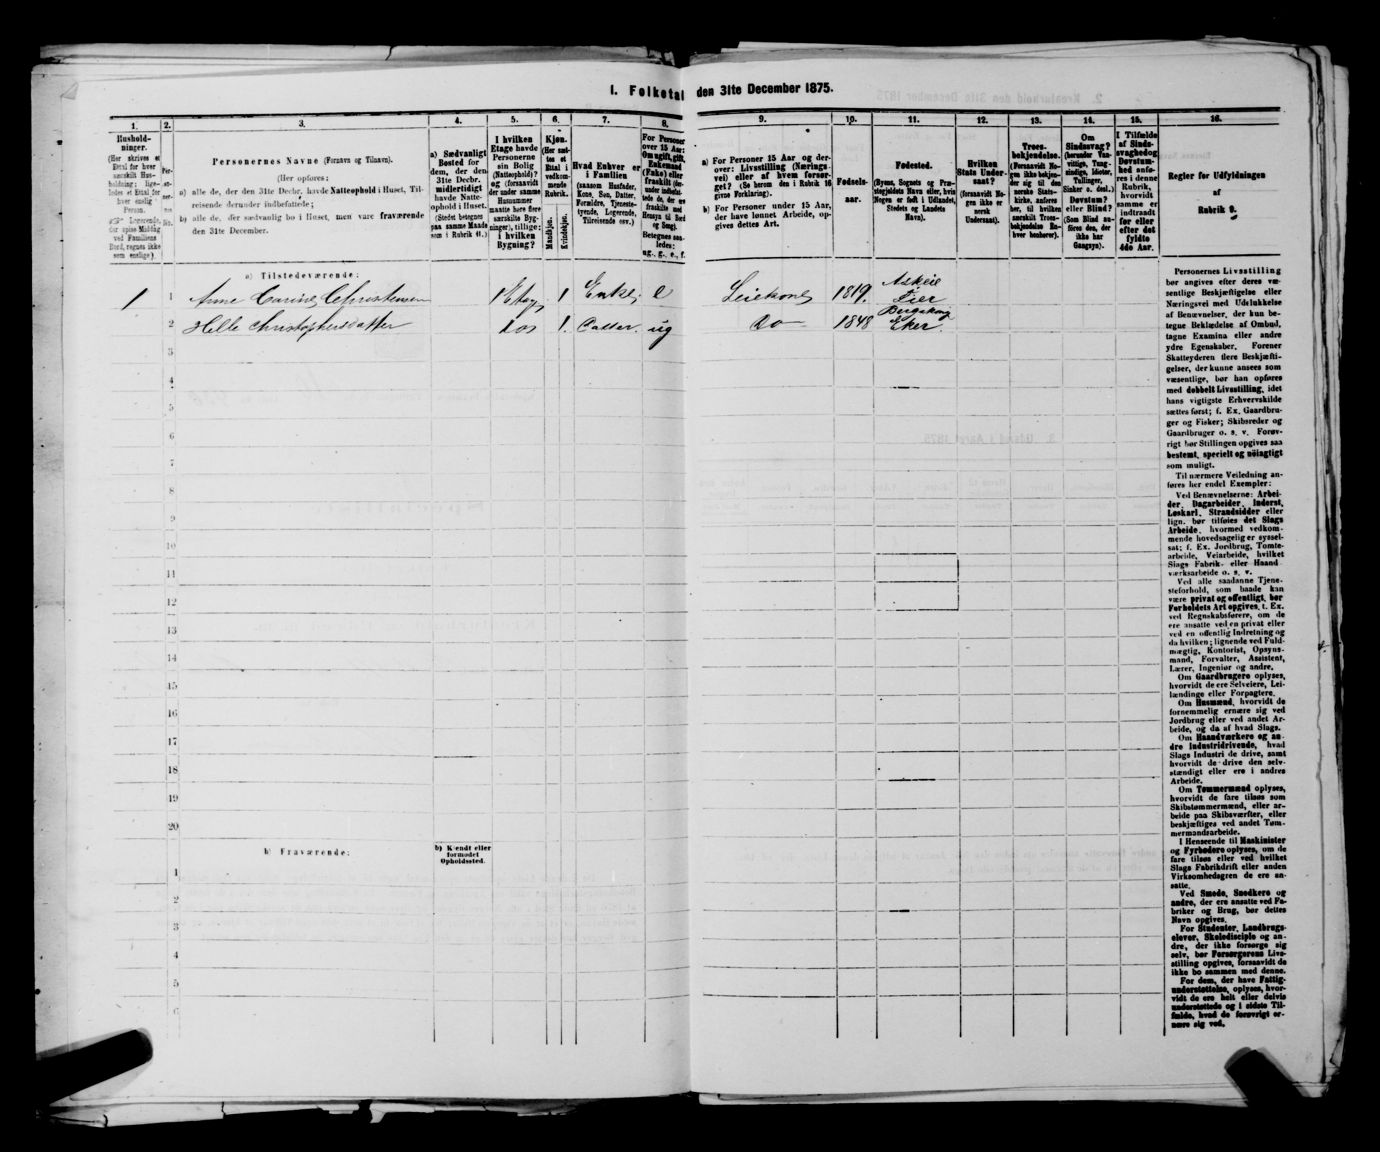 I. Folketal den 31te December 1875.
1.
Husholdninger.
(Her skrives et Ettal for hver særskilt Husholdning; ligeledes et Ettal for hver enslig Person.
Logerende, der spise Middag ved Familiens Bord, regnes ikke som enslige).
2.
Personernes No.
3.
Personernes Navne (Fornavn og Tilnavn).
(Her opføres:
a) alle de, der den 31te Decbr. havde Natteophold i Huset, Tilreisende derunder indbefattede;
b) alle de, der sædvanlig bo i Huset, men vare fraværende den 31te December.
4.
a) Sædvanligt Bosted for dem, der den 31te Decbr. midlertidigt havde Natteophold i Huset.
(Stedet betegnes paa samme Maade som i Rubrik 11.)
5.
I hvilken Etage havde Personerne sin Bolig (Natteophold)?
6.
Kjøn.
(Her sættes et Ettal i vedkommende Rubrik.
Mandkjøn.
Kvindekjøn.
7.
Hvad Enhver er i Familien
(saasom Husfader, Kone, Søn, Datter, Forældre, Tjenestetyende, Logerende, Tilreisende osv.)
8.
For Personer over 15 Aar: Om ugift, gift, Enkemand (Enke) eller fraskilt
Betegnes saaledes: ug., g., e., f.
9.
a) For Personer 15 Aar og derover: Livsstilling (Næringsvei) eller af hvem forsørget? (Se herom den i Rubrik 16 givne Forklaring).
b) For Personer under 15 Aar, der have lønnet Arbeide, opgives dettes Art.
10.
Fødselsaar.
11.
Fødested.
(Byens, Sognets og Præstegjeldets Navn eller, hvis Nogen er født i Udlandet, Stedets og Landets Navn).
12.
Hvilken Stats Undersaat?
(forsaavidt Nogen ikke er norsk Undersaat).
13.
Troesbekjendelse.
(Forsaavidt Nogen ikke bekjender sig til den norske Statskirke, anføres her, til hvilken anerkjendt Troesbekjendelse Enhver henhører).
14.
Om Sindssvag?
(herunder Vanvittige, Tungsindige, Idioter, Tullinger, Sinker o. desl.)
Døvstum? eller Blind?
(Som Blind anføres den, der ikke har Gangsyn).
15.
I Tilfælde af Sindssvaghed og Døvstumhed anføres i denne Rubrik, hvorvidt samme er indtraadt før eller efter det fyldte 4de Aar.
16.
Regler for Udfyldningen
af
Rubrik 9.
a) Tilstedeværende:
1 1 Anne Carine Christensen 1 Etag. 1 Enke. e Leiekone 1819. Asker Eier
2 Helle Christophersdatter 1. Datter. ug Do 1848 Eker.
3
4
5
6
7
8
9
10
11
12
13
14
15
16
17
18
19
20
b) Fraværende:
b) Kjendt eller formodet Opholdssted.
1
2
3
4
5
6
Personernes Livsstilling
bør angives efter deres væ-
sentlige Beskjæftigelse eller
Næringsvei med Udelukkelse
af Benævnelser, der kun be-
tegne Beklædelse af Ombud,
tagne Examina eller andre
ydre Egenskaber. Forener
Skatteyderen flere Beskjæfti-
gelser, der kunne ansees som
væsentlige, bør han opføres
med dobbelt Livsstilling, idet
hans vigtigste Erhvervskilde
sættes først; f. Ex. Gaardbru-
ger og Fisker; Skibsreder og
Gaardbruger o. s. v. Forøv-
rigt bør Stillingen opgives saa
bestemt, specielt og nøiagtigt
som muligt.
Til nærmere Veiledning an-
føres her endel Exempler:
Ved Benævnelserne: Arbei-
der, Dagarbeider, Inderst,
Løskarl, Strandsidder eller
lign. bør tilføies det Slags
Arbeide, hvormed vedkom-
mende hovedsagelig er syssel-
sat; f. Ex. Jordbrug, Tomte-
arbeide, Veiarbeide, hvilket
Slags Fabrik- eller Haand-
værksarbeide o. s. v.
Ved alle saadanne Tjene-
steforhold, som baade kan
være privat og offentligt, bør
Forholdets Art opgives, t. Ex.
ved Regnskabsførere, om de
ere ansatte ved en privat eller
ved en offentlig Indretning og
da hvilken; lignende ved Fuld-
mægtig, Kontorist, Opsyns-
mand, Forvalter, Assistent,
Lærer, Ingeniør og andre.
Om Gaardbrugere oplyses,
hvorvidt de ere Selveiere, Lei-
lændinge eller Forpagtere.
Om Husmænd, hvorvidt de
fornemmelig ernære sig ved
Jordbrug eller ved andet Ar-
beide, og da af hvad Slags.
Om Haandværkere og an-
dre Industridrivende, hvad
Slags Industri de drive, samt
hvorvidt de drive den selv-
stændigt eller ere i andres
Arbeide.
Om Tømmermænd oplyses,
hvorvidt de fare tilsøs som
Skibstømmermænd, eller ar-
beide paa Skibsværfter, eller
beskjæftiges ved andet Tøm-
mermandsarbeide.
I Henseende til Maskinister
og Fyrbødere oplyses, om de
fare tilsøs eller ved hvilket
Slags Fabrikdrift eller anden
Virksomhedsgren de ere an-
satte.
Ved Smede, Snedkere og
andre, der ere ansatte ved Fa-
briker og Brug, bør dettes
Navn opgives.
For Studenter, Landbrugs-
elever, Skoledisciple og an-
dre, der ikke forsørge sig
selv, bør Forsørgerens Livs-
stilling opgives, forsaavidt de
ikke bo sammen med denne.
For dem, der have Fattig-
understøttelse, oplyses, hvor-
vidt de ere helt eller delvis
understøttede og i sidste Til-
fælde, hvad de forøvrigt er-
nære sig ved.